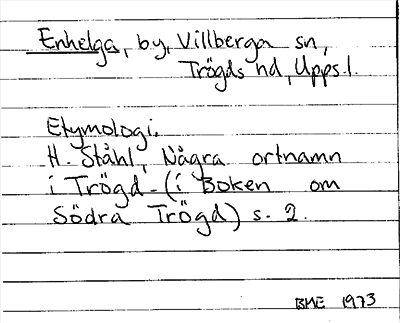 Enhelga, by, Villberga sn,
Trögds hd, Upps. l.
Etymologi.
H. Ståhl, Några ortnamn
i Trögd - (i Boken om
Södra Trögd) s. 2.
BME 1973